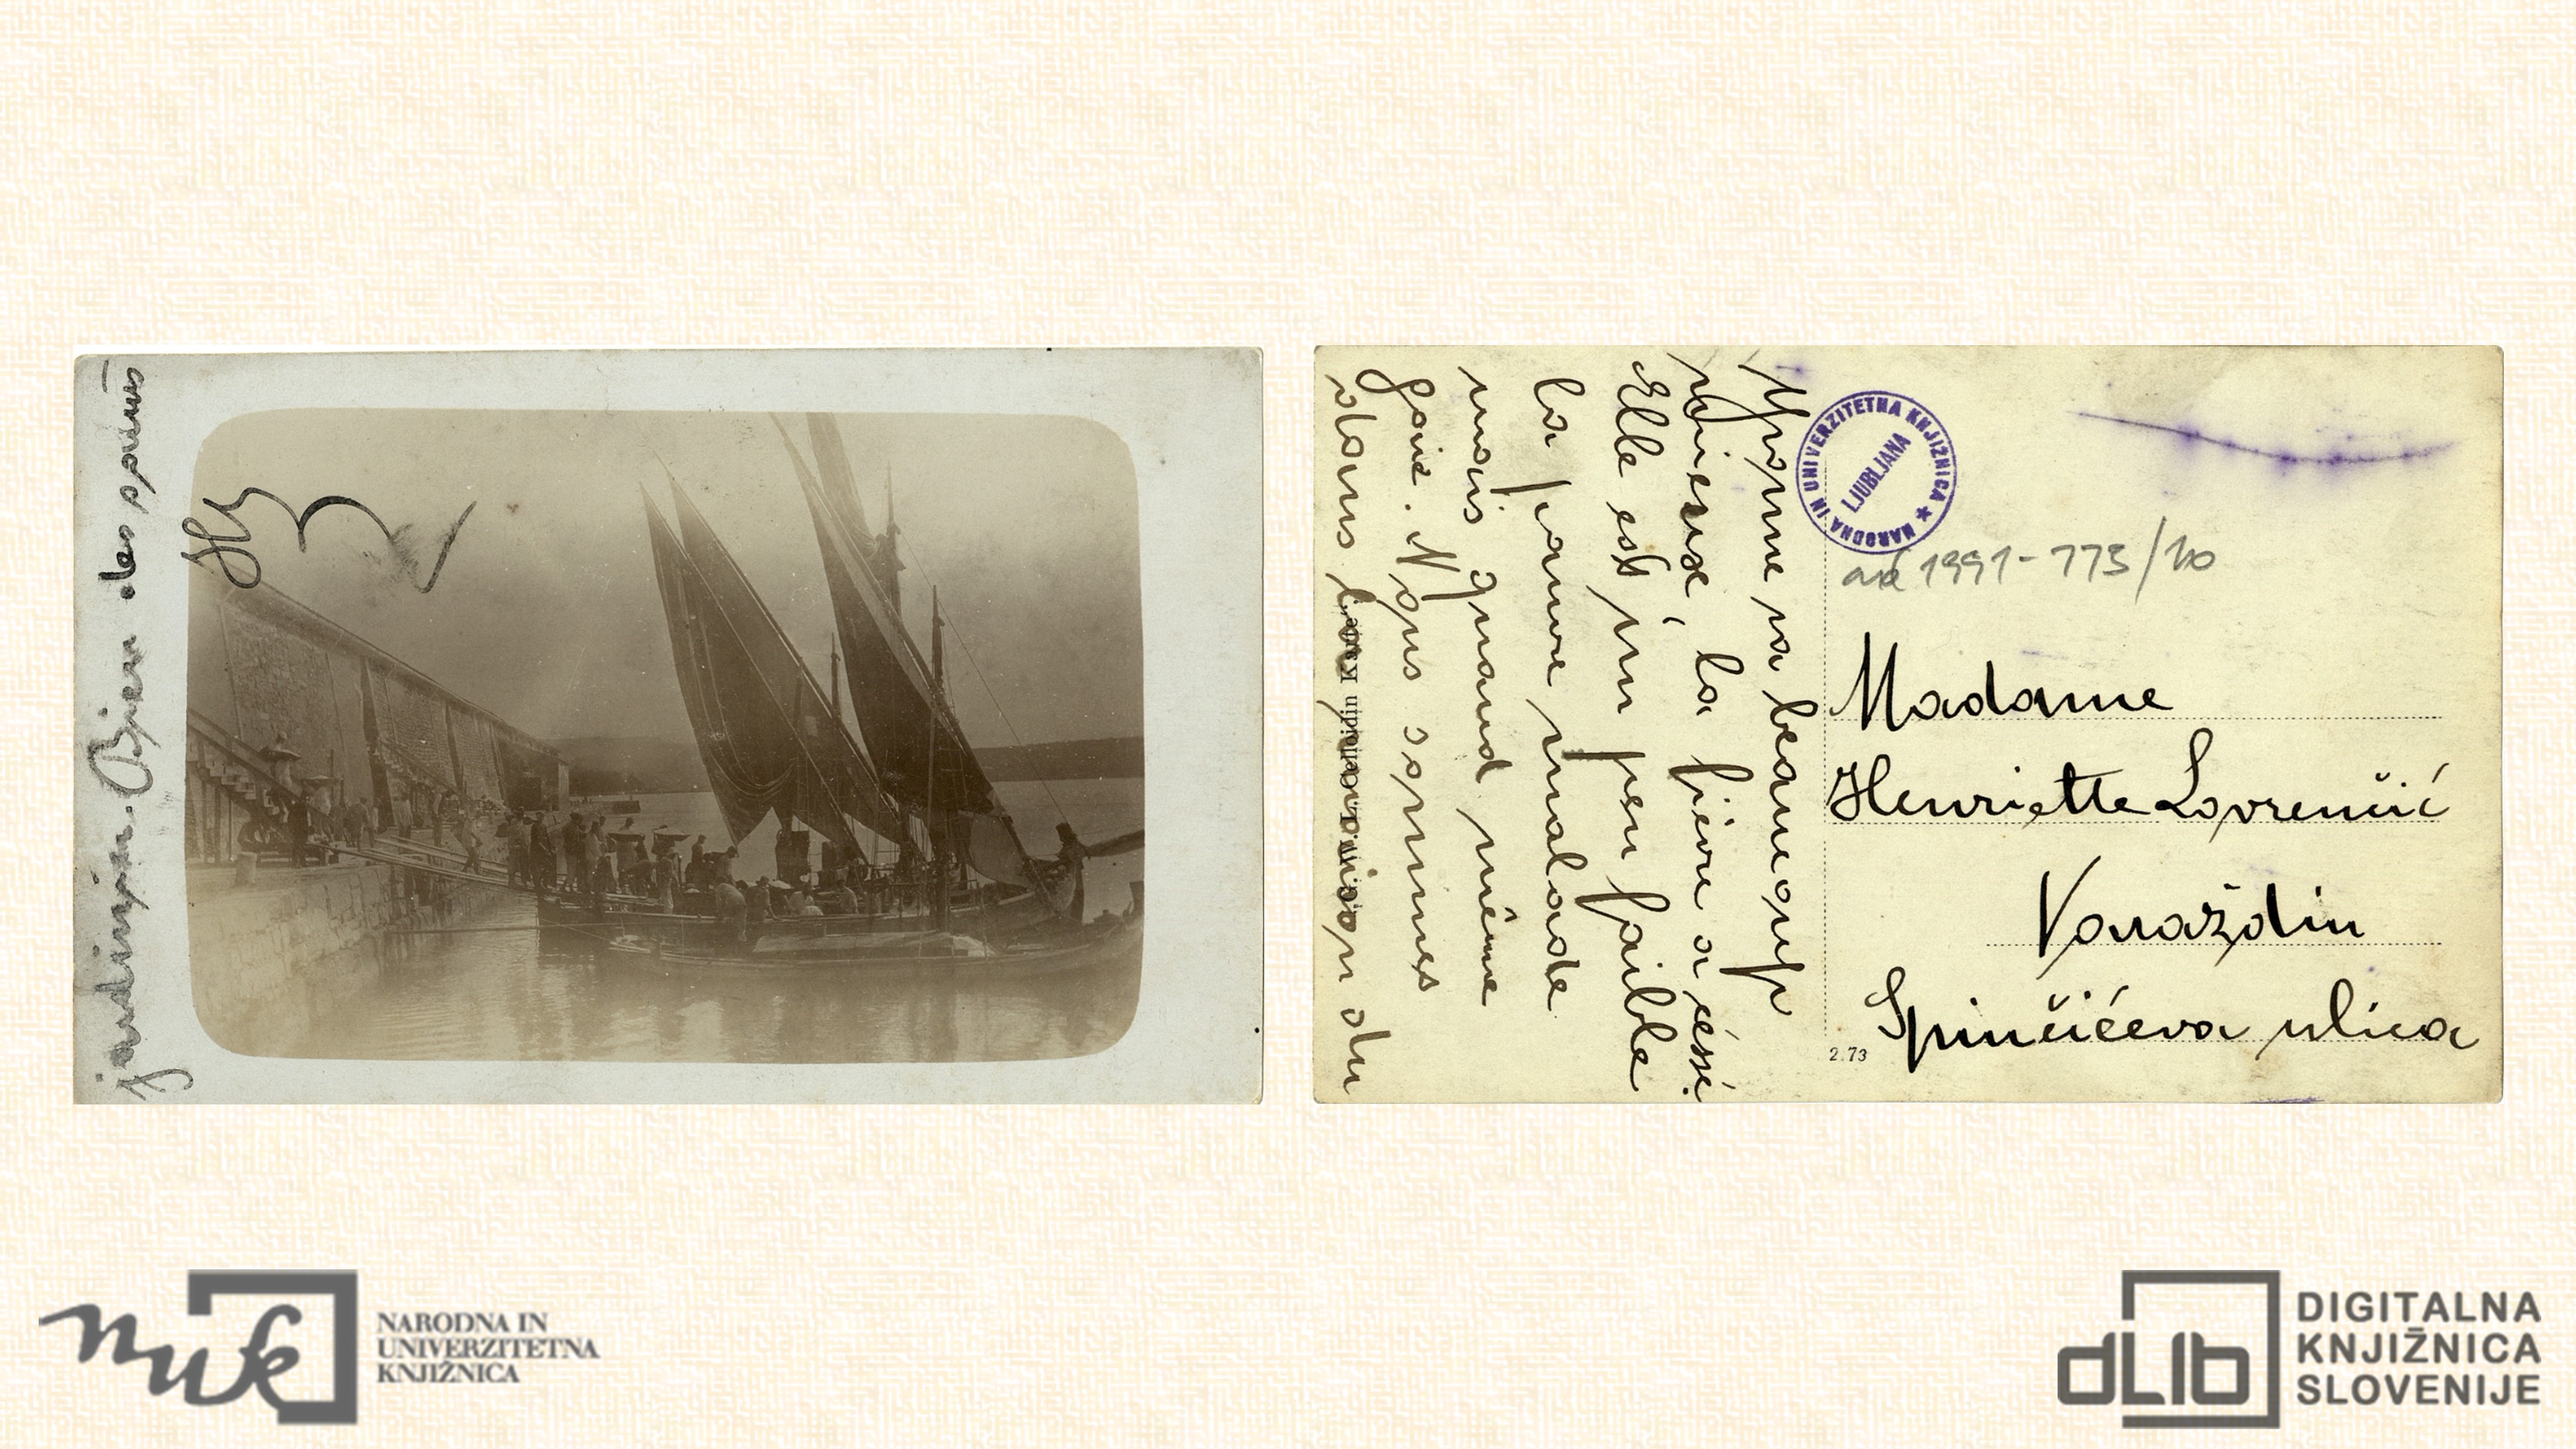 jardinjin. Bjen des soins
Yvonne va beaucoup
mieuse, la fièvre a céssé.
Elle est un peu faible
la pauvre malade
mais quand même
gaie. Nous sommes
dans
du
NARODNA IN UNIVERZITETNA KNJIŽNICA
LJUBLJANA
1991-773/10
Madame
Henriette Lovrenčić
Varaždin
Spinčićeva ulica
2.73
nuk
NARODNA IN
UNIVERZITETNA
KNJIŽNICA
dLib
DIGITALNA
KNJIŽNICA
SLOVENIJE